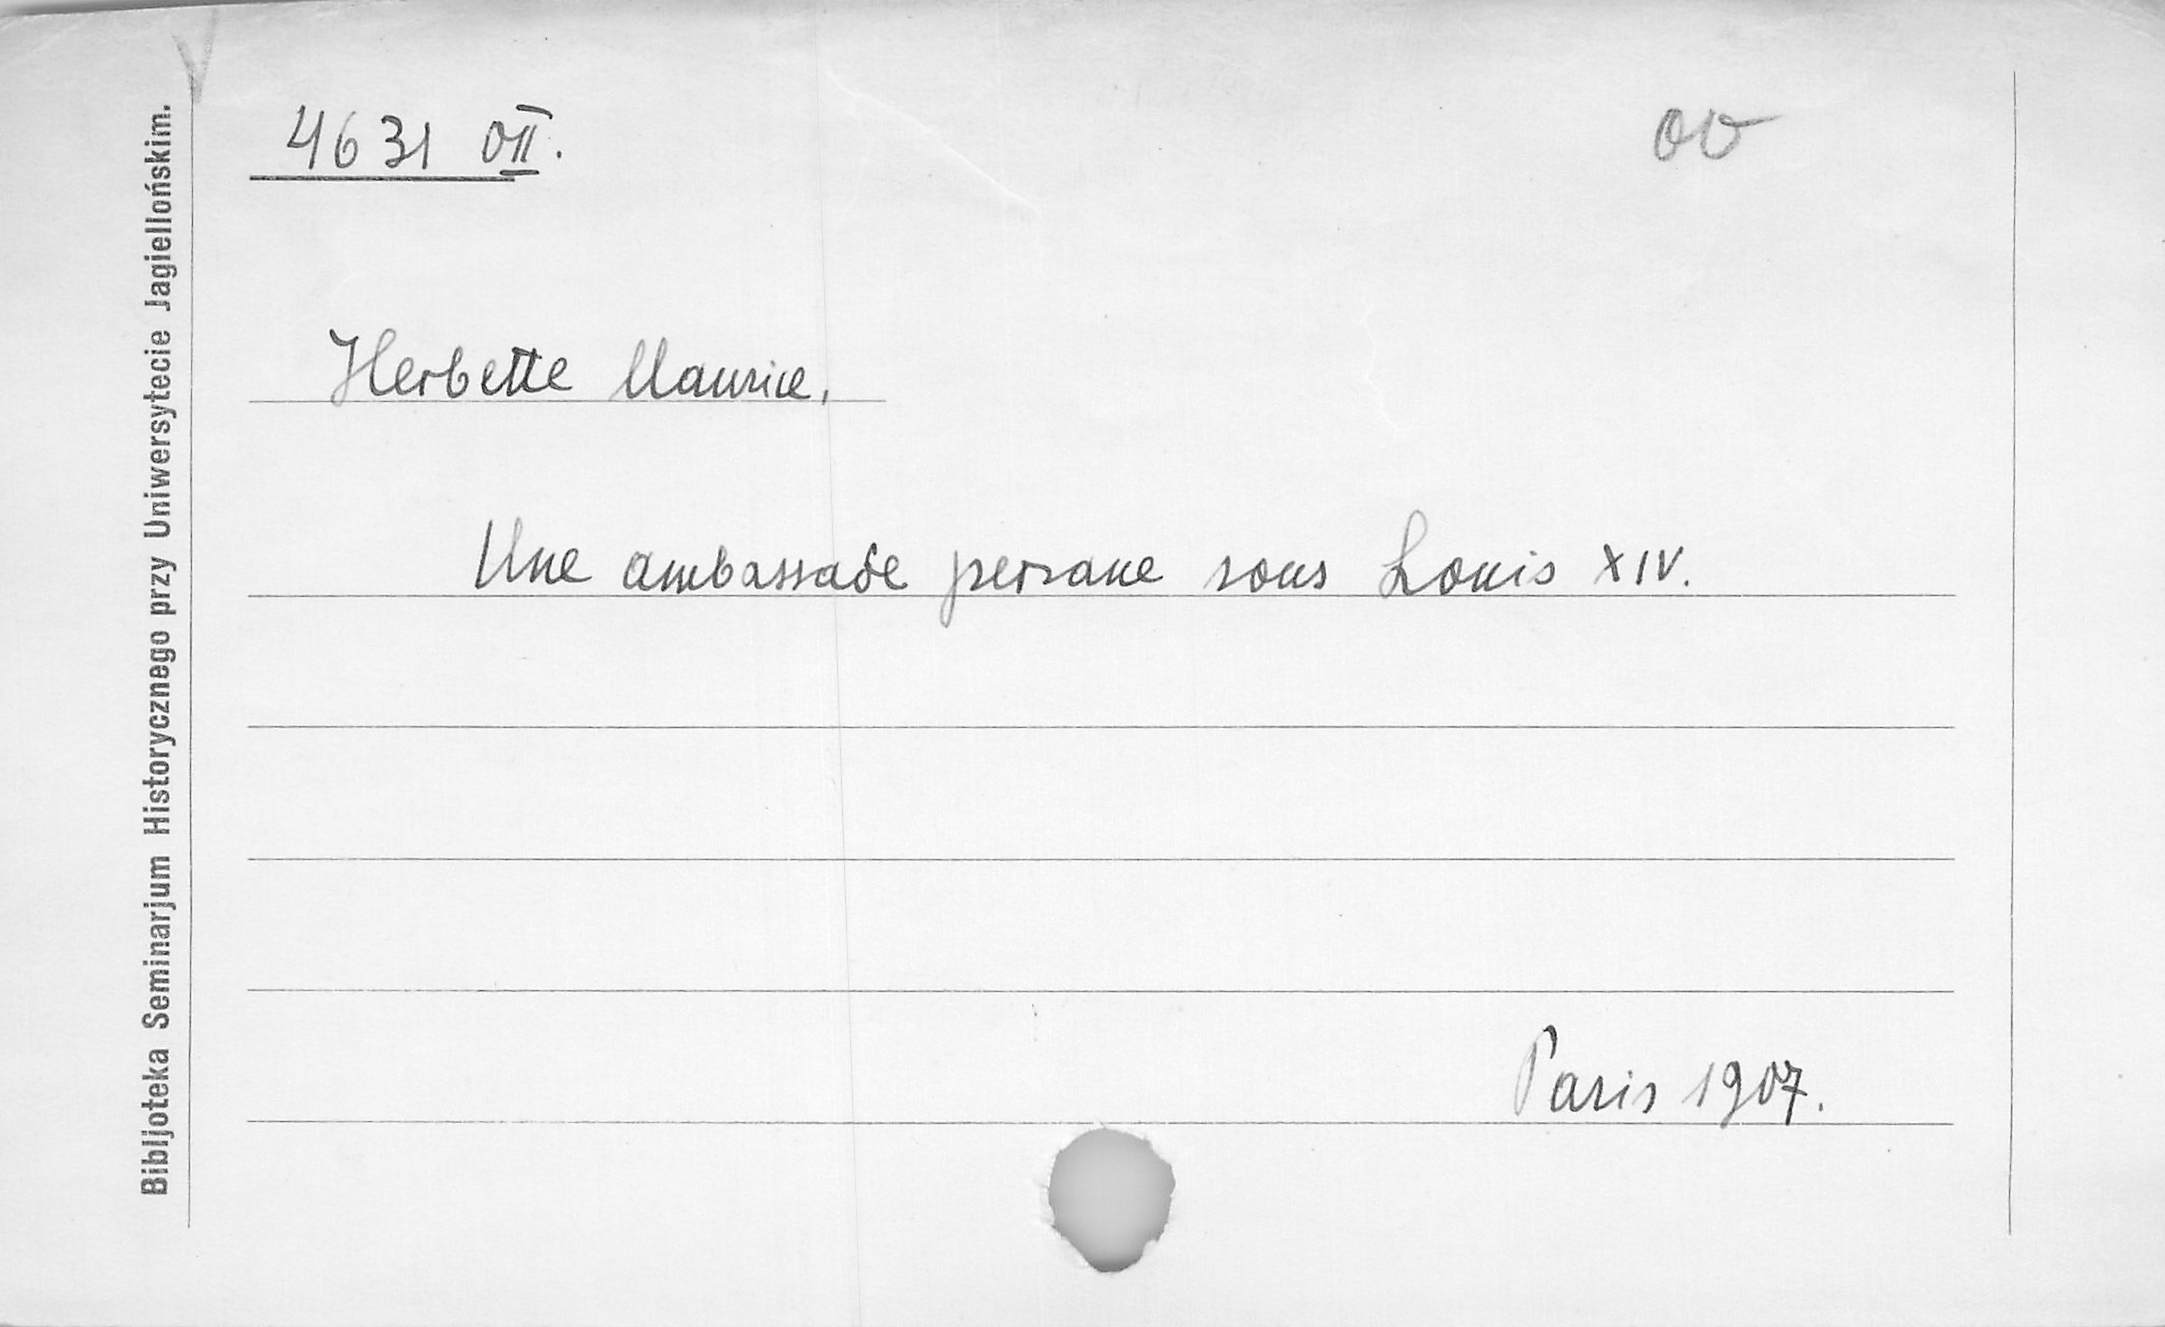 4631 OII.
Herbette Maurice.
Une ambassade persane sous Louis XIV.
Paris 1907.
Bibljoteka Seminarjum Historycznego przy Uniwersytecie Jagiellońskim.